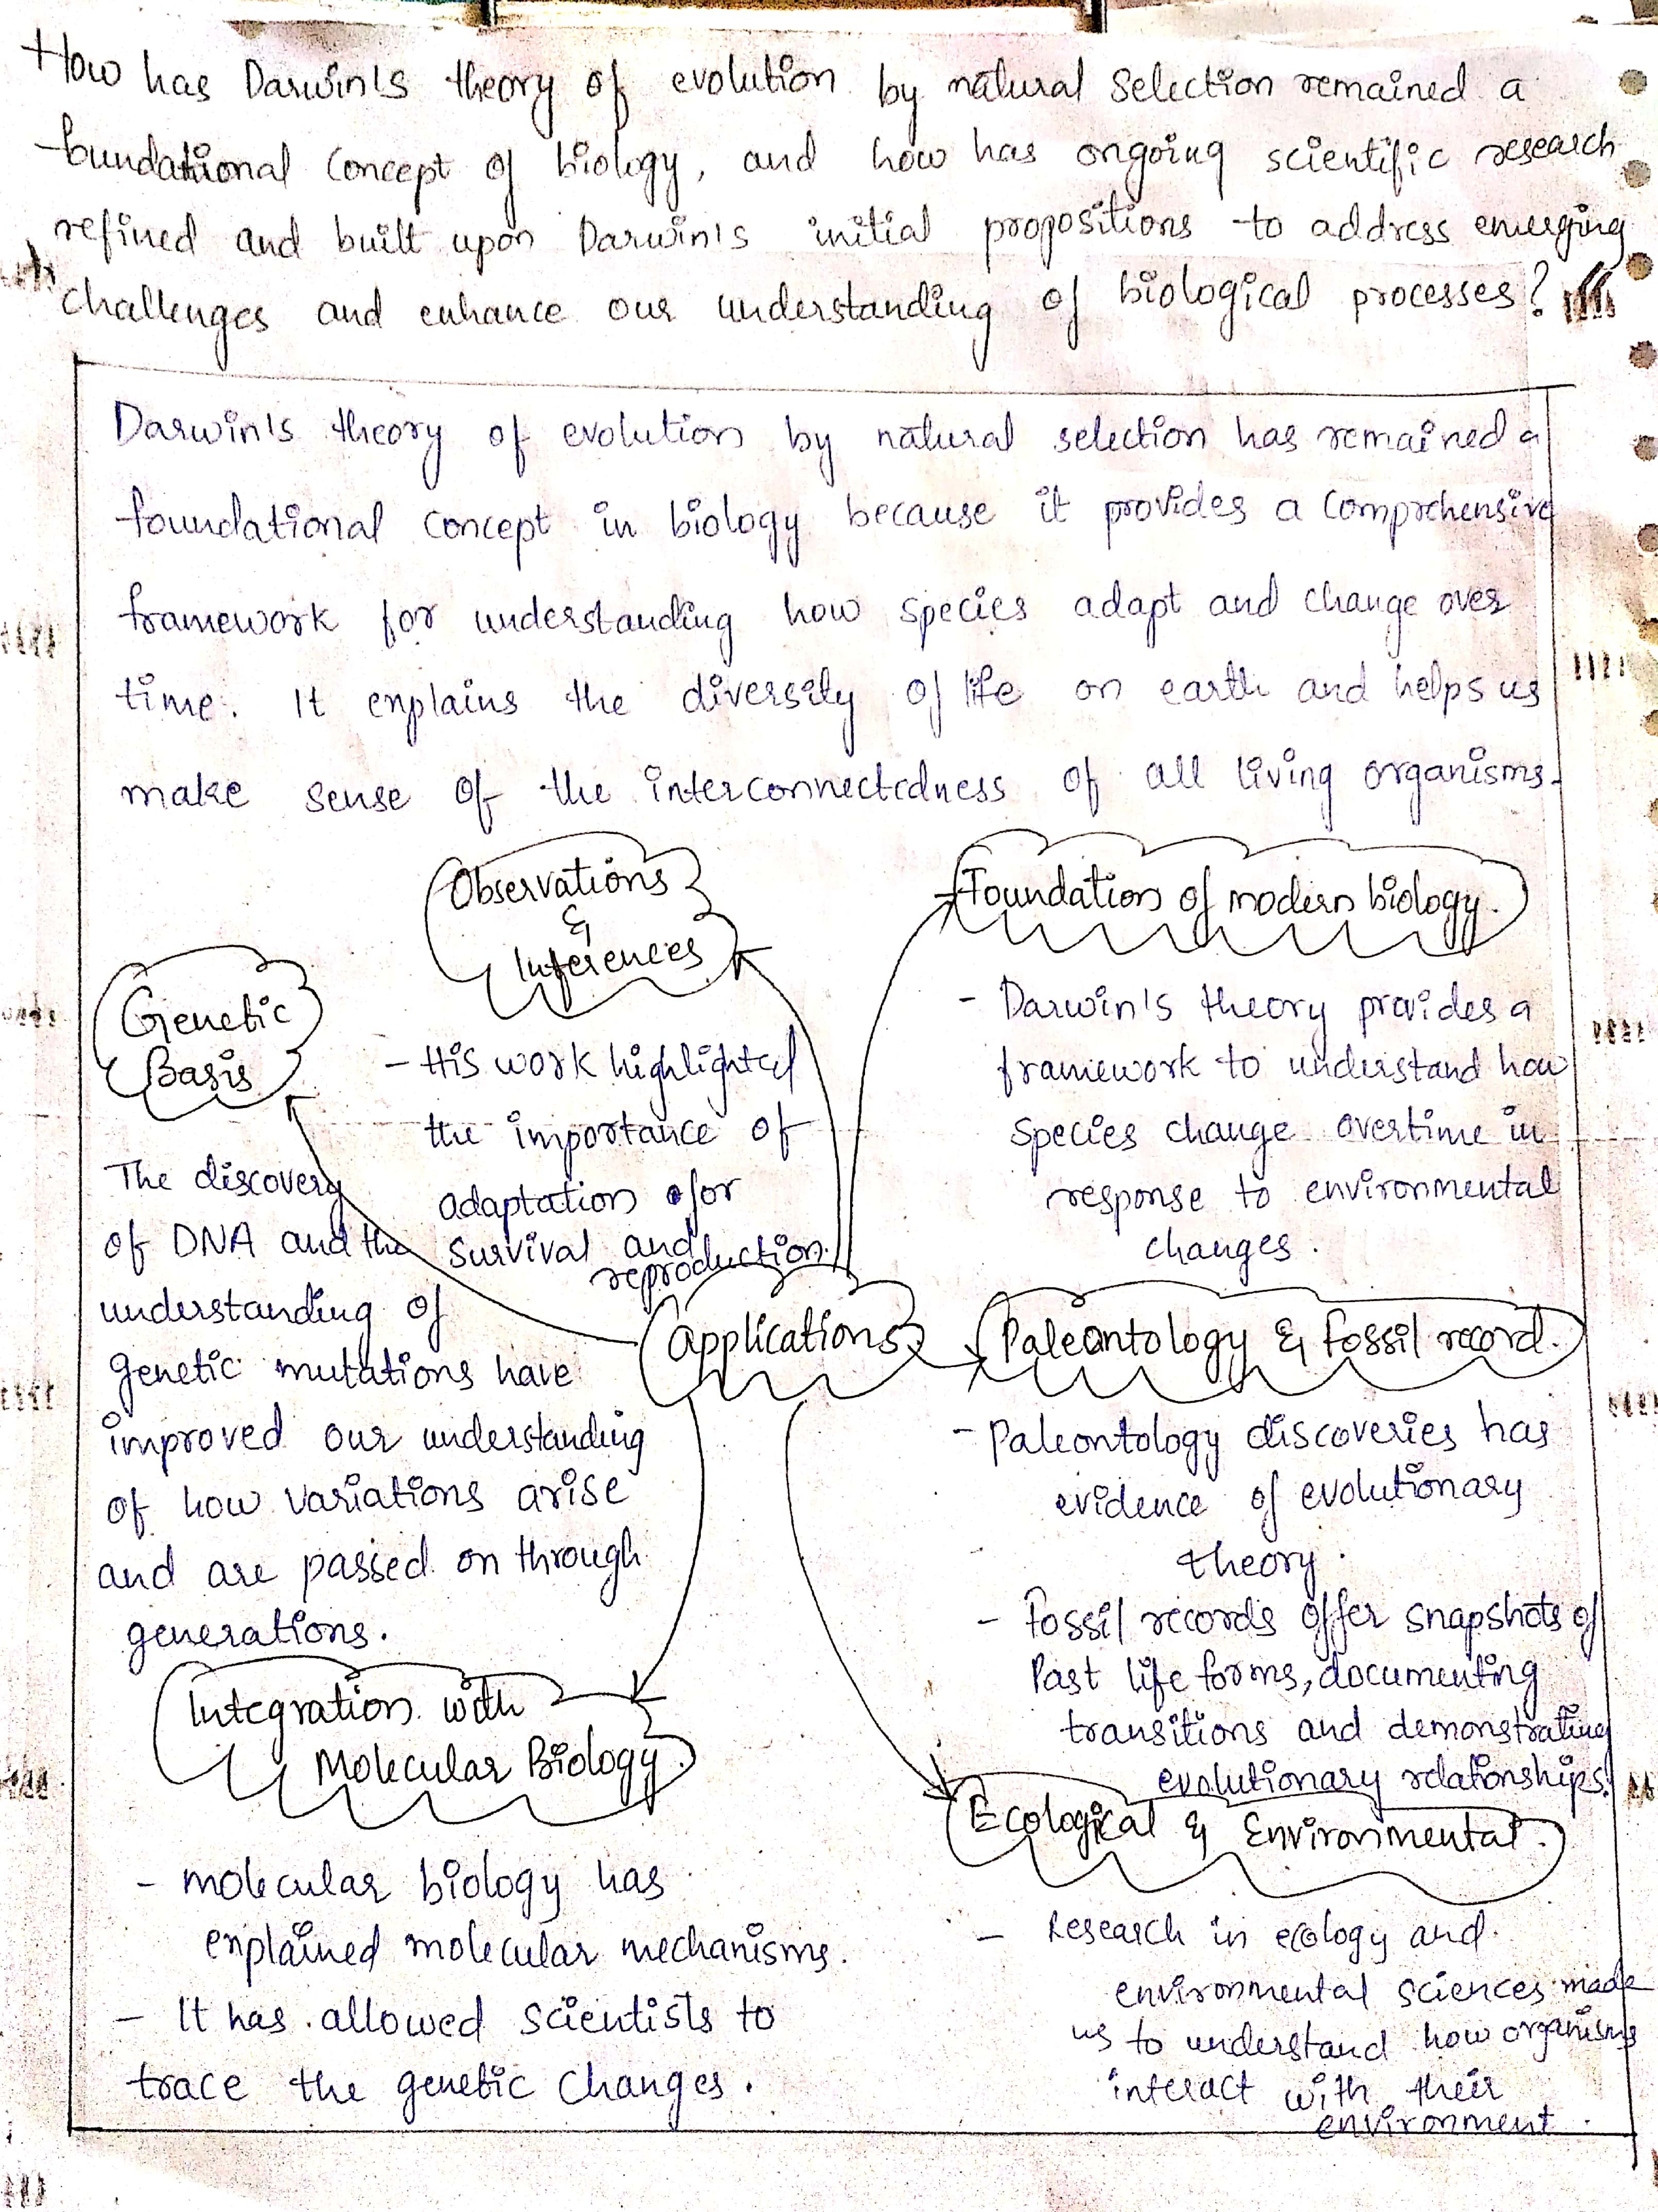 How has Darwin's theory of evolution by natural selection remained a
foundational concept of biology, and how has ongoing scientific research
refined and built upon Darwin's initial propositions to address emerging
challenges and enhance our understanding of biological processes?
Darwin's theory of evolution by natural selection has remained a
foundational concept in biology because it provides a comprehensive
framework for understanding how species adapt and change over
time. It explains the diversity of life on earth and helps us
make sense of the interconnectedness of all living organisms.
Observations
&
Inferences
- His work highlighted
the importance of
adaptation for
survival and
reproduction.
Foundation of modern biology.
- Darwin's theory provides a
framework to understand how
species change overtime in
response to environmental
changes.
Genetic
Basis
The discovery
of DNA and the
understanding of
genetic mutations have
improved our understanding
of how variations arise
and are passed on through
generations.
Applications
Paleontology & fossil record.
- Paleontology discoveries has
evidence of evolutionary
theory.
- Fossil records offer snapshots of
Past life forms, documenting
transitions and demonstrating
evolutionary relationships.
Integration with
Molecular Biology.
- molecular biology has
explained molecular mechanisms.
- It has allowed scientists to
trace the genetic changes.
Ecological & Environmental.
- Research in ecology and
environmental sciences made
us to understand how organisms
interact with their
environment.